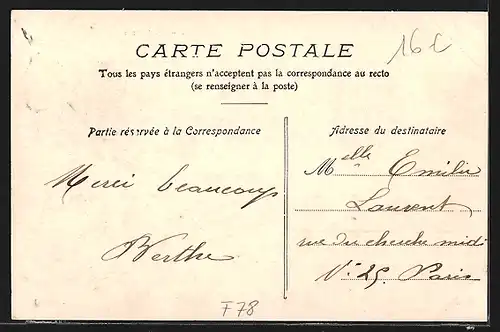 CARTE POSTALE
16 L
Tous les pays étrangers n'acceptent pas la correspondance au recto
(se renseigner à la poste)
Partie réservée à la Correspondance
Adresse du destinataire
Merci beaucoup
Berthe
Melle Emilie
Laurent
rue du cherche midi
No 25. Paris
F78